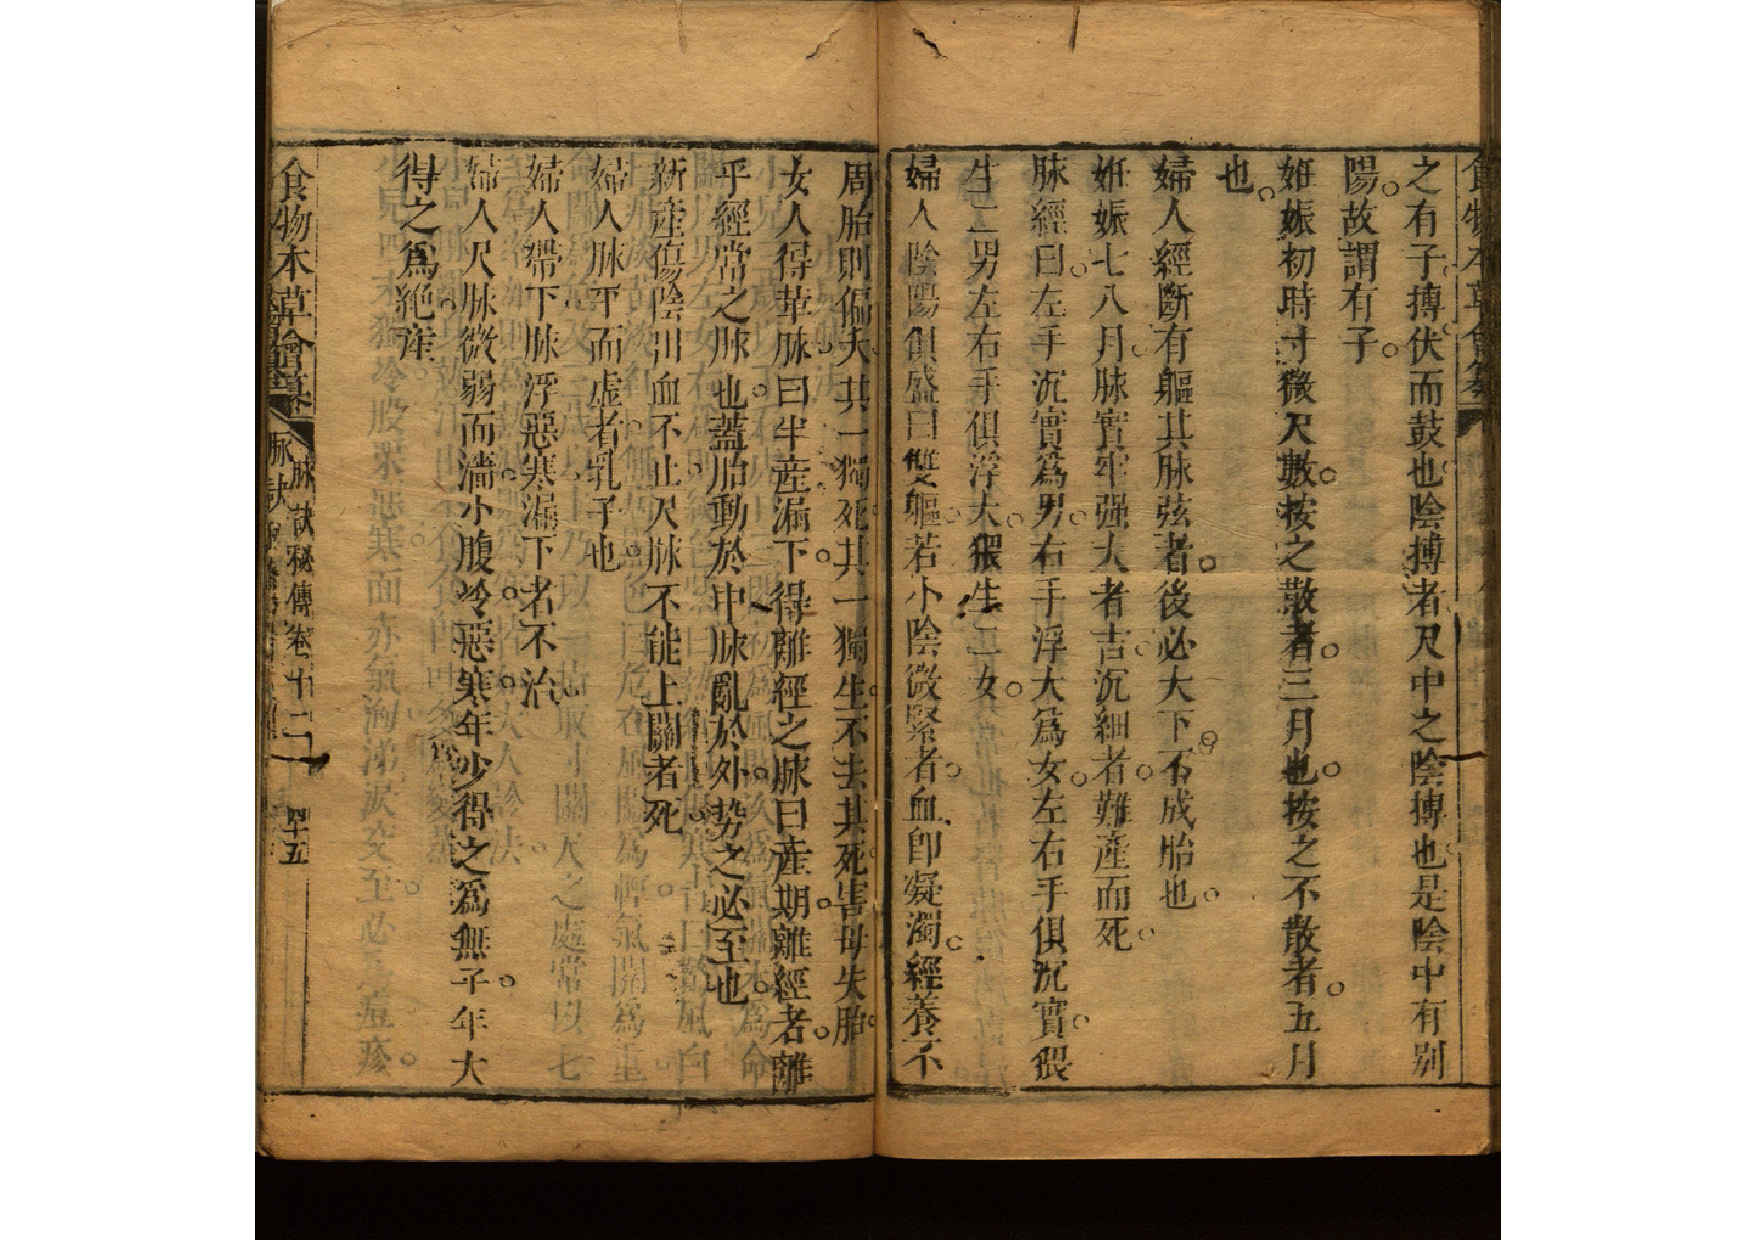 食物本草會纂
之有子搏伏而鼓也陰搏者尺中之陰搏也是陰中有別
陽故謂有子
姙娠初時寸微尺數按之散者三月也按之不散者五月
也
婦人經斷有軀其脉弦者後必大下不成胎也
姙娠七八月脉實牢强大者吉沉細者難產而死
脉經曰左手沉實爲男右手浮大爲女左右手俱沉實猥
生二男左右手俱浮大猥生二女
婦人陰陽俱盛曰雙軀若小陰微緊者血卽凝濁經養不
周胎則偏夭其一獨死其一獨生不去其死害母失胎
女人得革脉曰半產漏下得離經之脉曰產期離經者離
乎經常之脉也蓋胎動於中脉亂於外勢之必至也
新產傷陰出血不止尺脉不能上關者死
婦人脉平而虛者乳子也
婦人帶下脉浮惡寒漏下者不治
婦人尺脉微弱而濇小腹冷惡寒年少得之爲無子年大
得之爲絶產
食物本草會纂
脉訣秘傳卷十二
四十五